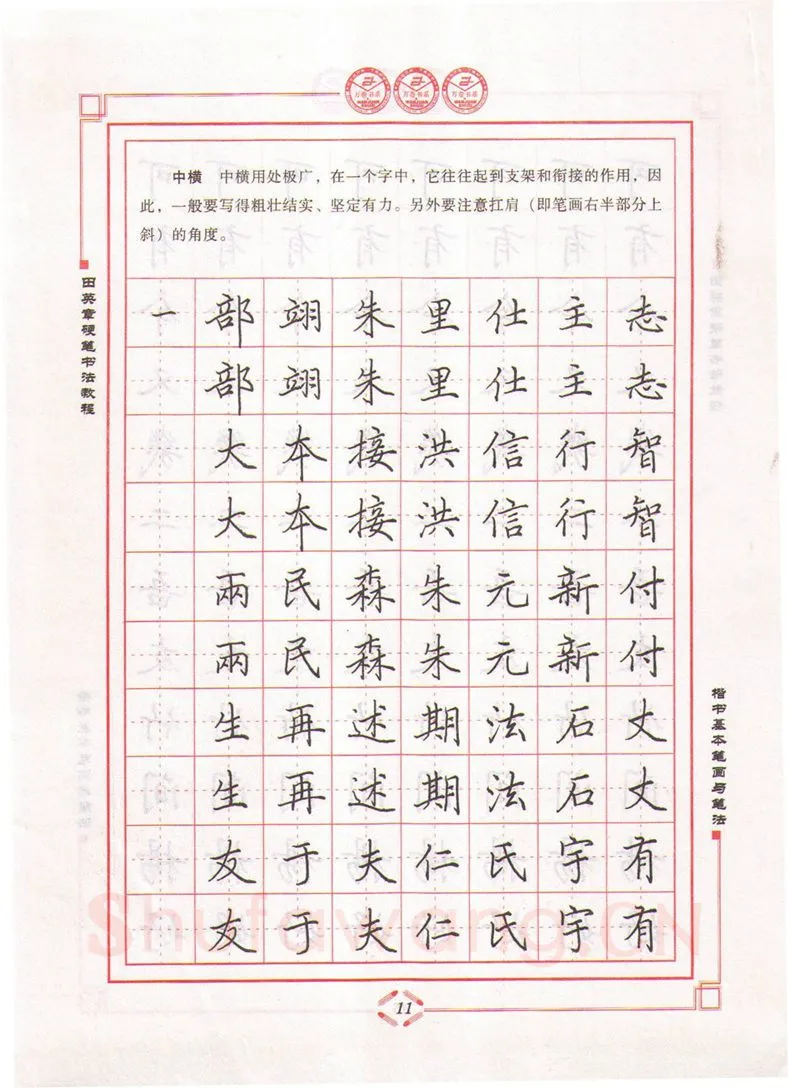 中横 中横用处极广，在一个字中，它往往起到支架和衔接的作用，因
此，一般要写得粗壮结实、坚定有力。另外要注意扛肩（即笔画右半部分上
斜）的角度。
田英章硬笔书法教程
一 部 翊 朱 里 仕 主 志
部 翊 朱 里 仕 主 志
大 本 接 洪 信 行 智
大 本 接 洪 信 行 智
兩 民 森 朱 元 新 付
兩 民 森 朱 元 新 付
生 再 述 期 法 石 丈
生 再 述 期 法 石 丈
友 于 夫 仁 氏 宇 有
友 于 夫 仁 氏 宇 有
楷书基本笔画与笔法
Shufawang.CN
11